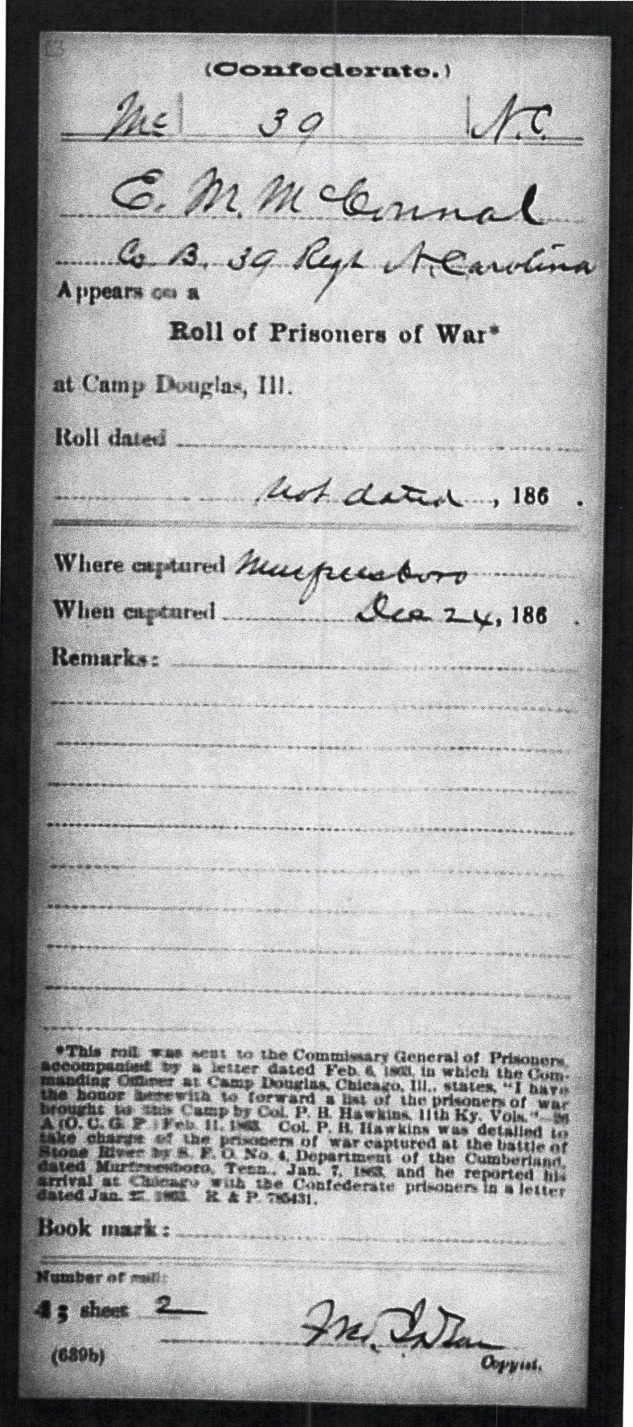 (Confederate.)
Mc 39 N.C.
E. M. McConnal
Co B, 39 Regt N. Carolina
Appears on a
Roll of Prisoners of War*
at Camp Douglas, Ill.
Roll dated
Not dated, 186 .
Where captured Murfreesboro
When captured Dec 24, 186 .
Remarks:
*This roll was sent to the Commissary General of Prisoners,
accompanied by a letter dated Feb. 6, 1863, in which the Com-
manding Officer at Camp Douglas, Chicago, Ill., states, "I have
the honor herewith to forward a list of the prisoners of war
brought to this Camp by Col. P. H. Hawkins, 11th Ky. Vols."—
A (O. C. G. P.) Feb. 11, 1863. Col. P. H. Hawkins was detailed to
take charge of the prisoners of war captured at the battle of
Stone River by S. F. O. No. 4, Department of the Cumberland,
dated Murfreesboro, Tenn., Jan. 7, 1863, and he reported his
arrival at Chicago with the Confederate prisoners in a letter
dated Jan. 1863. R & P. 785431.
Book mark:
Number of roll:
sheet 2
(639b)
Copyist.